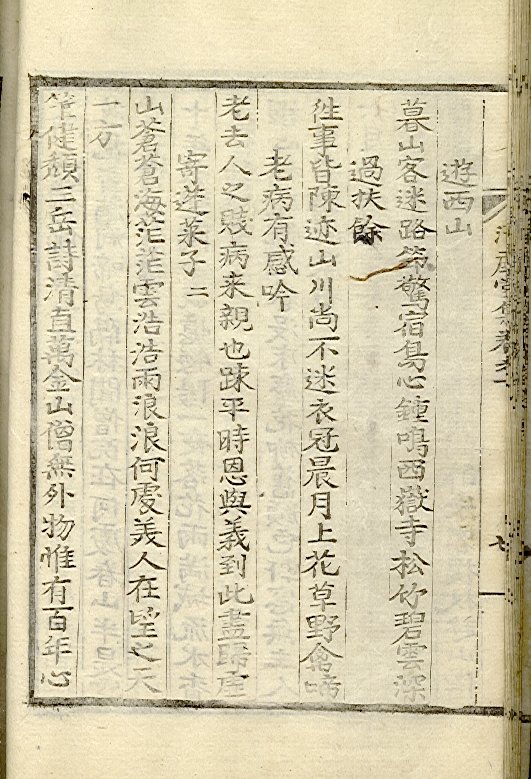 遊西山
暮山客迷路笻驚宿鳥心鍾鳴西嶽寺松竹碧雲深
過扶餘
徃事皆陳迹山川尚不迷衣冠晨月上花草野禽啼
老病有感吟
老去人之賤病来親也踈平時恩與義到此盡歸虛
寄蓬萊子 二
山蒼蒼海茫茫雲浩浩雨浪浪何處美人在望之天
一方
筆健頽三岳詩清直萬金山僧無外物惟有百年心